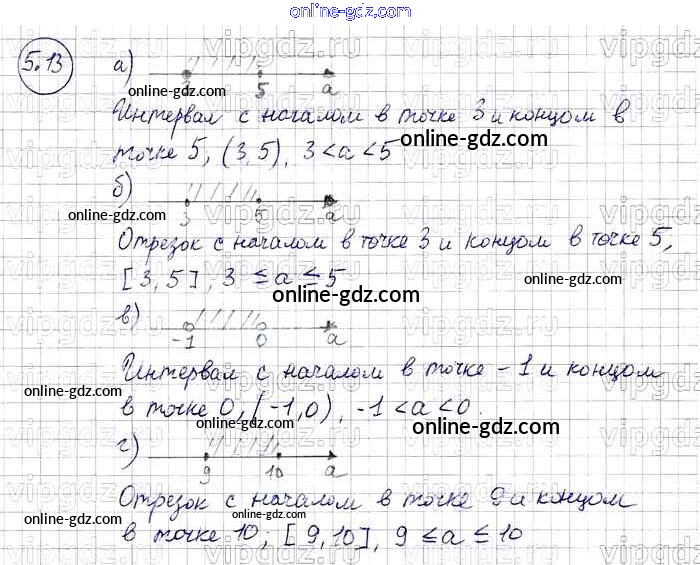 online-gdz.com
5.13
а)
3 5 a
Интервал с началом в точке 3 и концом в
точке 5, (3,5), 3 < a < 5
online-gdz.com
б)
3 5 a
online-gdz.com
Отрезок с началом в точке 3 и концом в точке 5,
[3,5], 3 ≤ a ≤ 5
online-gdz.com
online-gdz.com
в)
-1 0 a
Интервал с началом в точке -1 и концом
online-gdz.com
в точке 0, (-1,0), -1 < a < 0.
online-gdz.com
г)
9 10 a
Отрезок с началом в точке 9 и концом
online-gdz.com
online-gdz.com
в точке 10; [9,10], 9 ≤ a ≤ 10
vipgdz.ru